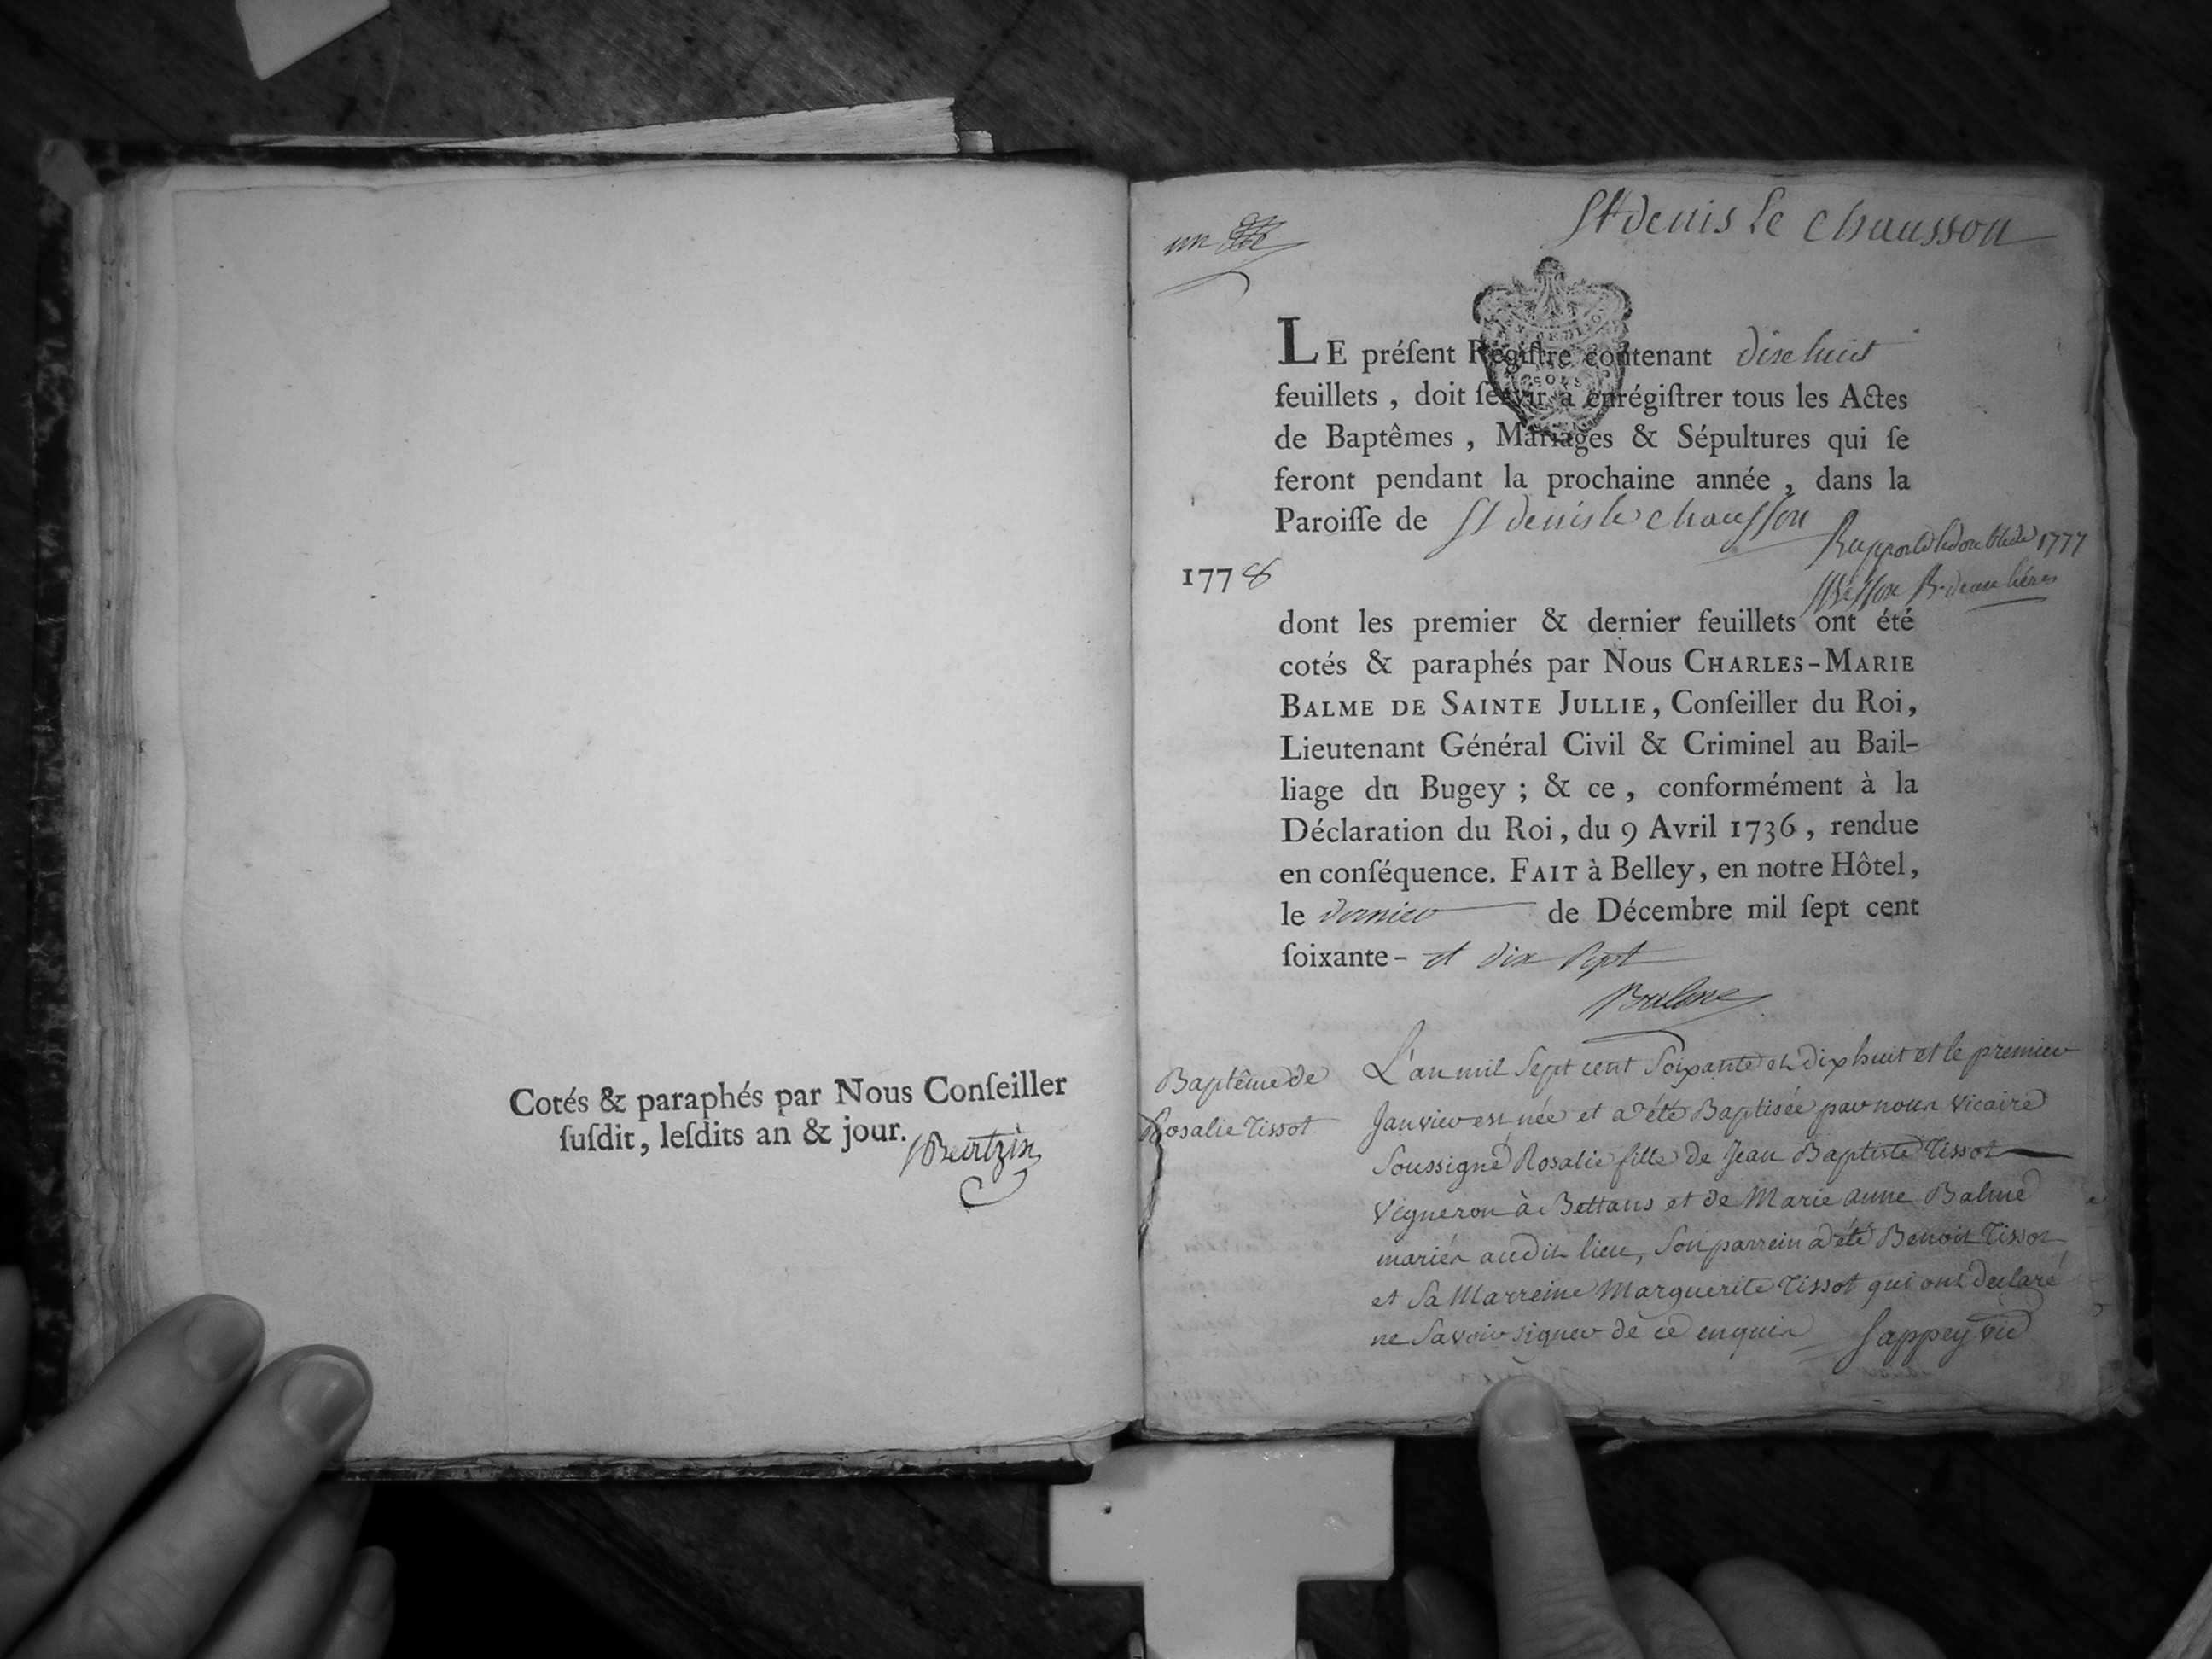 Cotés & paraphés par Nous Conſeiller
ſuſdit, leſdits an & jour.
un
St denis le chausson
LE préſent Régiſtre contenant dixe huit
feuillets , doit ſervir à enrégiſtrer tous les Actes
de Baptêmes , Mariages & Sépultures qui ſe
feront pendant la prochaine année , dans la
Paroiſſe de St denis le chausson
Rapporté le double de 1777
1778
dont les premier & dernier feuillets ont été
cotés & paraphés par Nous CHARLES-MARIE
BALME DE SAINTE JULLIE, Conſeiller du Roi,
Lieutenant Général Civil & Criminel au Bail-
liage du Bugey ; & ce , conformément à la
Déclaration du Roi, du 9 Avril 1736 , rendue
en conſéquence. FAIT à Belley, en notre Hôtel,
le dernier de Décembre mil ſept cent
ſoixante- et dix sept
Balme
Baptême de
Rosalie Tissot
L'an mil Sept cent Soixante et Dix huit et le premier
Janvier est née et a été Baptisée par nous Vicaire
Soussigné Rosalie fille de Jean Baptiste Tissot
Vigneron à Bettans et de Marie anne Balme
mariés audit lieu, Son parrein a été Benoit Tissot
et Sa Marreine Marguerite Tissot qui ont declaré
ne Savoir signer de ce enquis Sappey vic